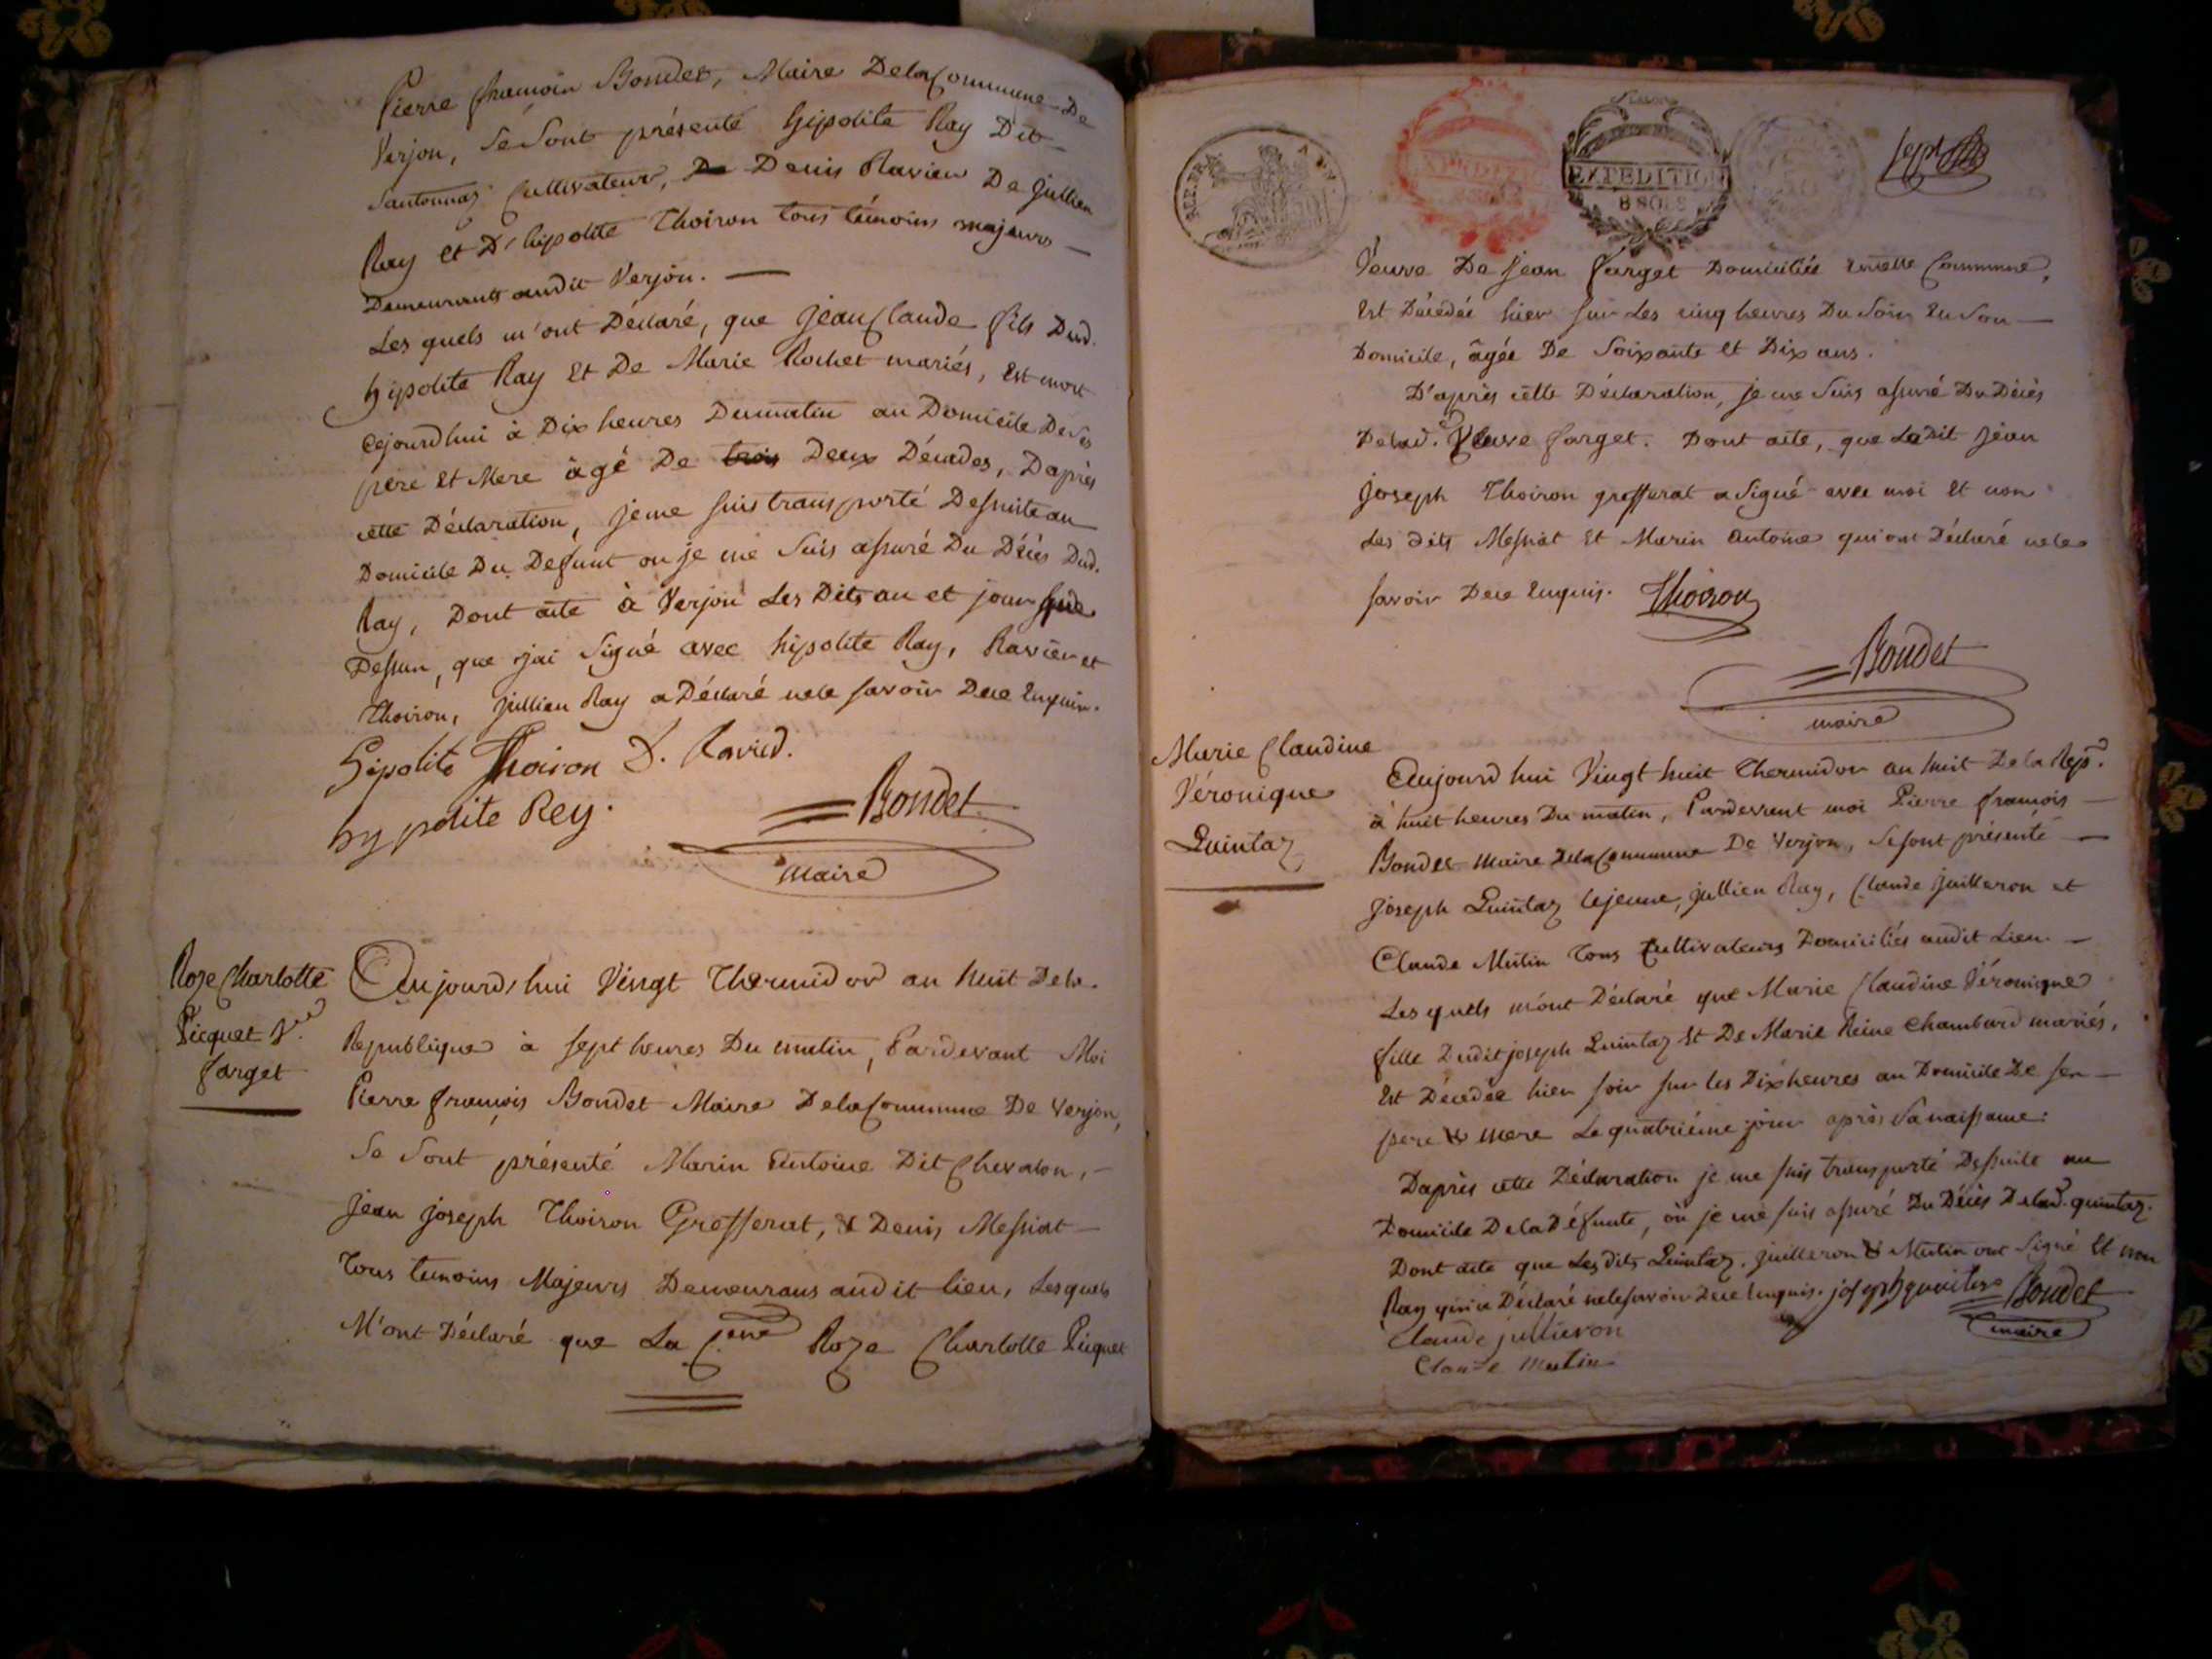 Pierre françois Bondet, Maire Delacommune De
Verjon, se sont présenté hipolite Ray Dit
Santonnaz Cultivateur, De Denis Ravier De Jullien
Ray et D'hipolite Thoiron tous témoins majeurs
Demeurants audit Verjon.
Lesquels m'ont Déclaré, que Jean Claude fils Dud.
hypolite Ray Et De Marie Rochet mariés, Est mort
Cejourd'hui à Dix heures Dumatin au Domicile De ses
pere Et Mere âgé De trois Deux Décades, Daprès
cette Déclaration, je me suis transporté Desuite au
Domicile Du Defunt ou je me suis assuré Du Décès Dud.
Ray, Dont acte à Verjon Les Dits an et jour que
Dessun, que j'ai signé avec hipolite Ray, Ravier et
Thoiron, Jullien Ray a Déclaré nele savoir Dece Enquis.
hipolite Thoiron D. Ravier.
hypolite Rey.
Bondet
maire
Roze Charlotte
Picquet Vve
farget
Aujourd'hui Vingt Thermidor an huit Dela
Republique à sept heures Du matin, Pardevant Moi
Pierre françois Bondet Maire Delacommune De Verjon,
Se Sont présenté Marin Antoine Dit Chevalon,
Jean joseph Thoiron Grofferat, & Denis Messiat
Tous temoins Majeurs Demeurans audit lieu, Lesquels
M'ont Déclaré que La Cenne Roze Charlotte Picquet
REP. FRA.
EXPEDITION
8 SOLS
sept
Veuve De Jean farget Domiciliée encette Commune,
Est Décédée hier sur Les cinq heures Du Soir En Son
Domicile, âgée De Soixante Et Dix ans.
D'après cette Déclaration, je me suis assuré Du Décès
Delad. Veuve farget. Dont acte, que LeDit Jean
Joseph Thoiron grofferat a signé avec moi Et non
Les dits Messiat Et Marin Antoine qui ont Déclaré nele
savoir Dece Enquis. Thoiron
Bondet
maire
Marie Claudine
Véronique
Quintaz
Aujourd'hui Vingt huit Thermidor an huit De la Rép.
à huit heures Du matin, Pardevant moi Pierre françois
Bondet maire Delacommune De Verjon, se sont présenté
Joseph Quintaz lejeune, jullien Ray, Claude Juilleron et
Claude Mutin Tous Cultivateurs Domiciliés audit Lieu.
Lesquels m'ont Déclaré que Marie Claudine Véronique
fille Dudit joseph Quintaz Et De Marie Reine Chambard mariés,
Est Décédée hier soir sur les Dix heures au Domicile De ses
pere & mere Le quatrième jour après Sa naissance:
Daprès cette Déclaration je me suis transporté Desuite au
Domicile De la Défunte, où je me suis assuré Du Décès Delad. quintaz.
Dont acte que Lesdits Quintaz, Juilleron & Mutin ont signé Et non
Ray qui a Déclaré nele savoir Dece Enquis. joseph quintas Bondet
maire
Claude jullieron
Claude mutin